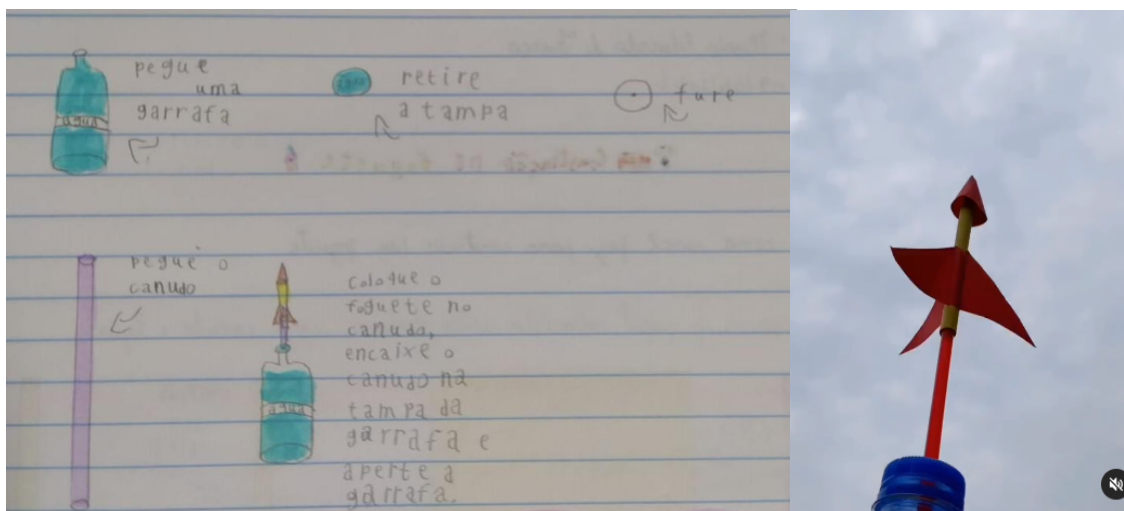 pegue
uma
garrafa
água
água
retire
a tampa
fure
pegue o
canudo
coloque o
foguete no
canudo,
encaixe o
canudo na
tampa da
garrafa e
aperte a
garrafa.
água